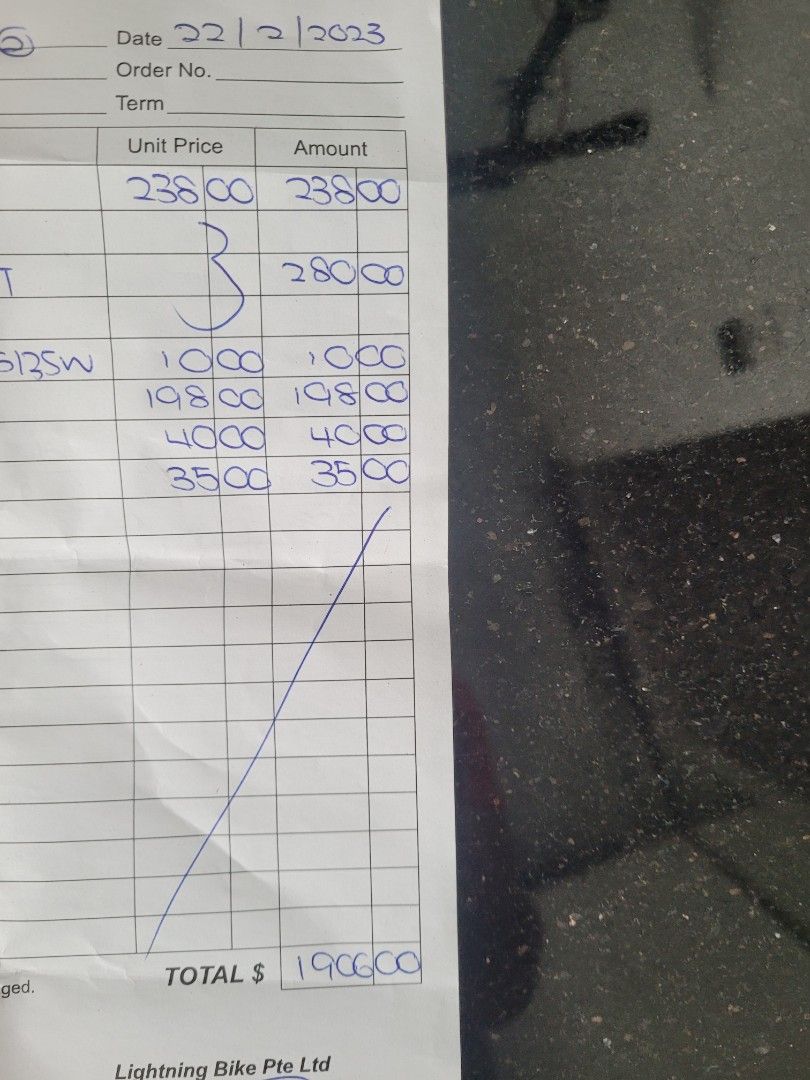 Date 22/2/2023
Order No.
Term
Unit Price Amount
238 00 238 00
T 280 00
5135W 10 00 10 00
198 00 198 00
40 00 40 00
35 00 35 00
TOTAL $ 1906 00
ged.
Lightning Bike Pte Ltd